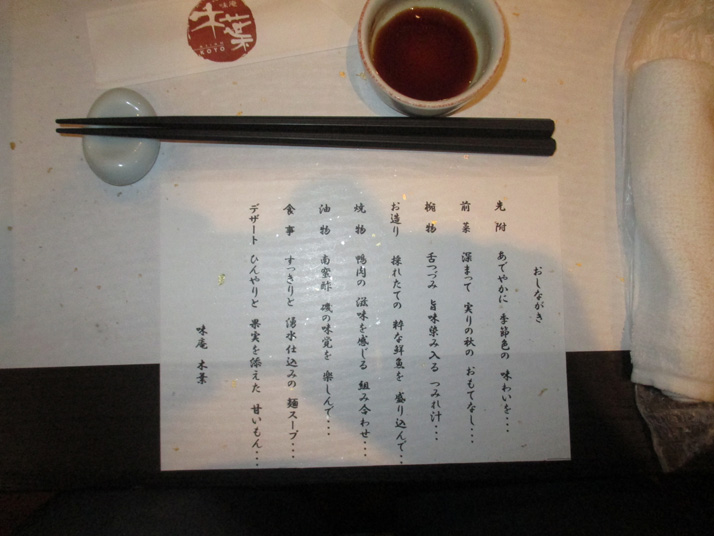 味庵
木葉
KOYO
おしながき
先附 あでやかに 季節色の 味わいを・・・
前菜 深まって 実りの秋の おもてなし・・・
椀物 舌つづみ 旨味染み入る つみれ汁・・・
お造り 採れたての 粋な鮮魚を 盛り込んで・・・
焼物 鴨肉の 滋味を感じる 組み合わせ・・・
油物 南蛮酢 磯の味覚を 楽しんで・・・
食事 すっきりと 湧水仕込みの 麺スープ・・・
デザート ひんやりと 果実を添えた 甘いもん・・・
味庵 木葉